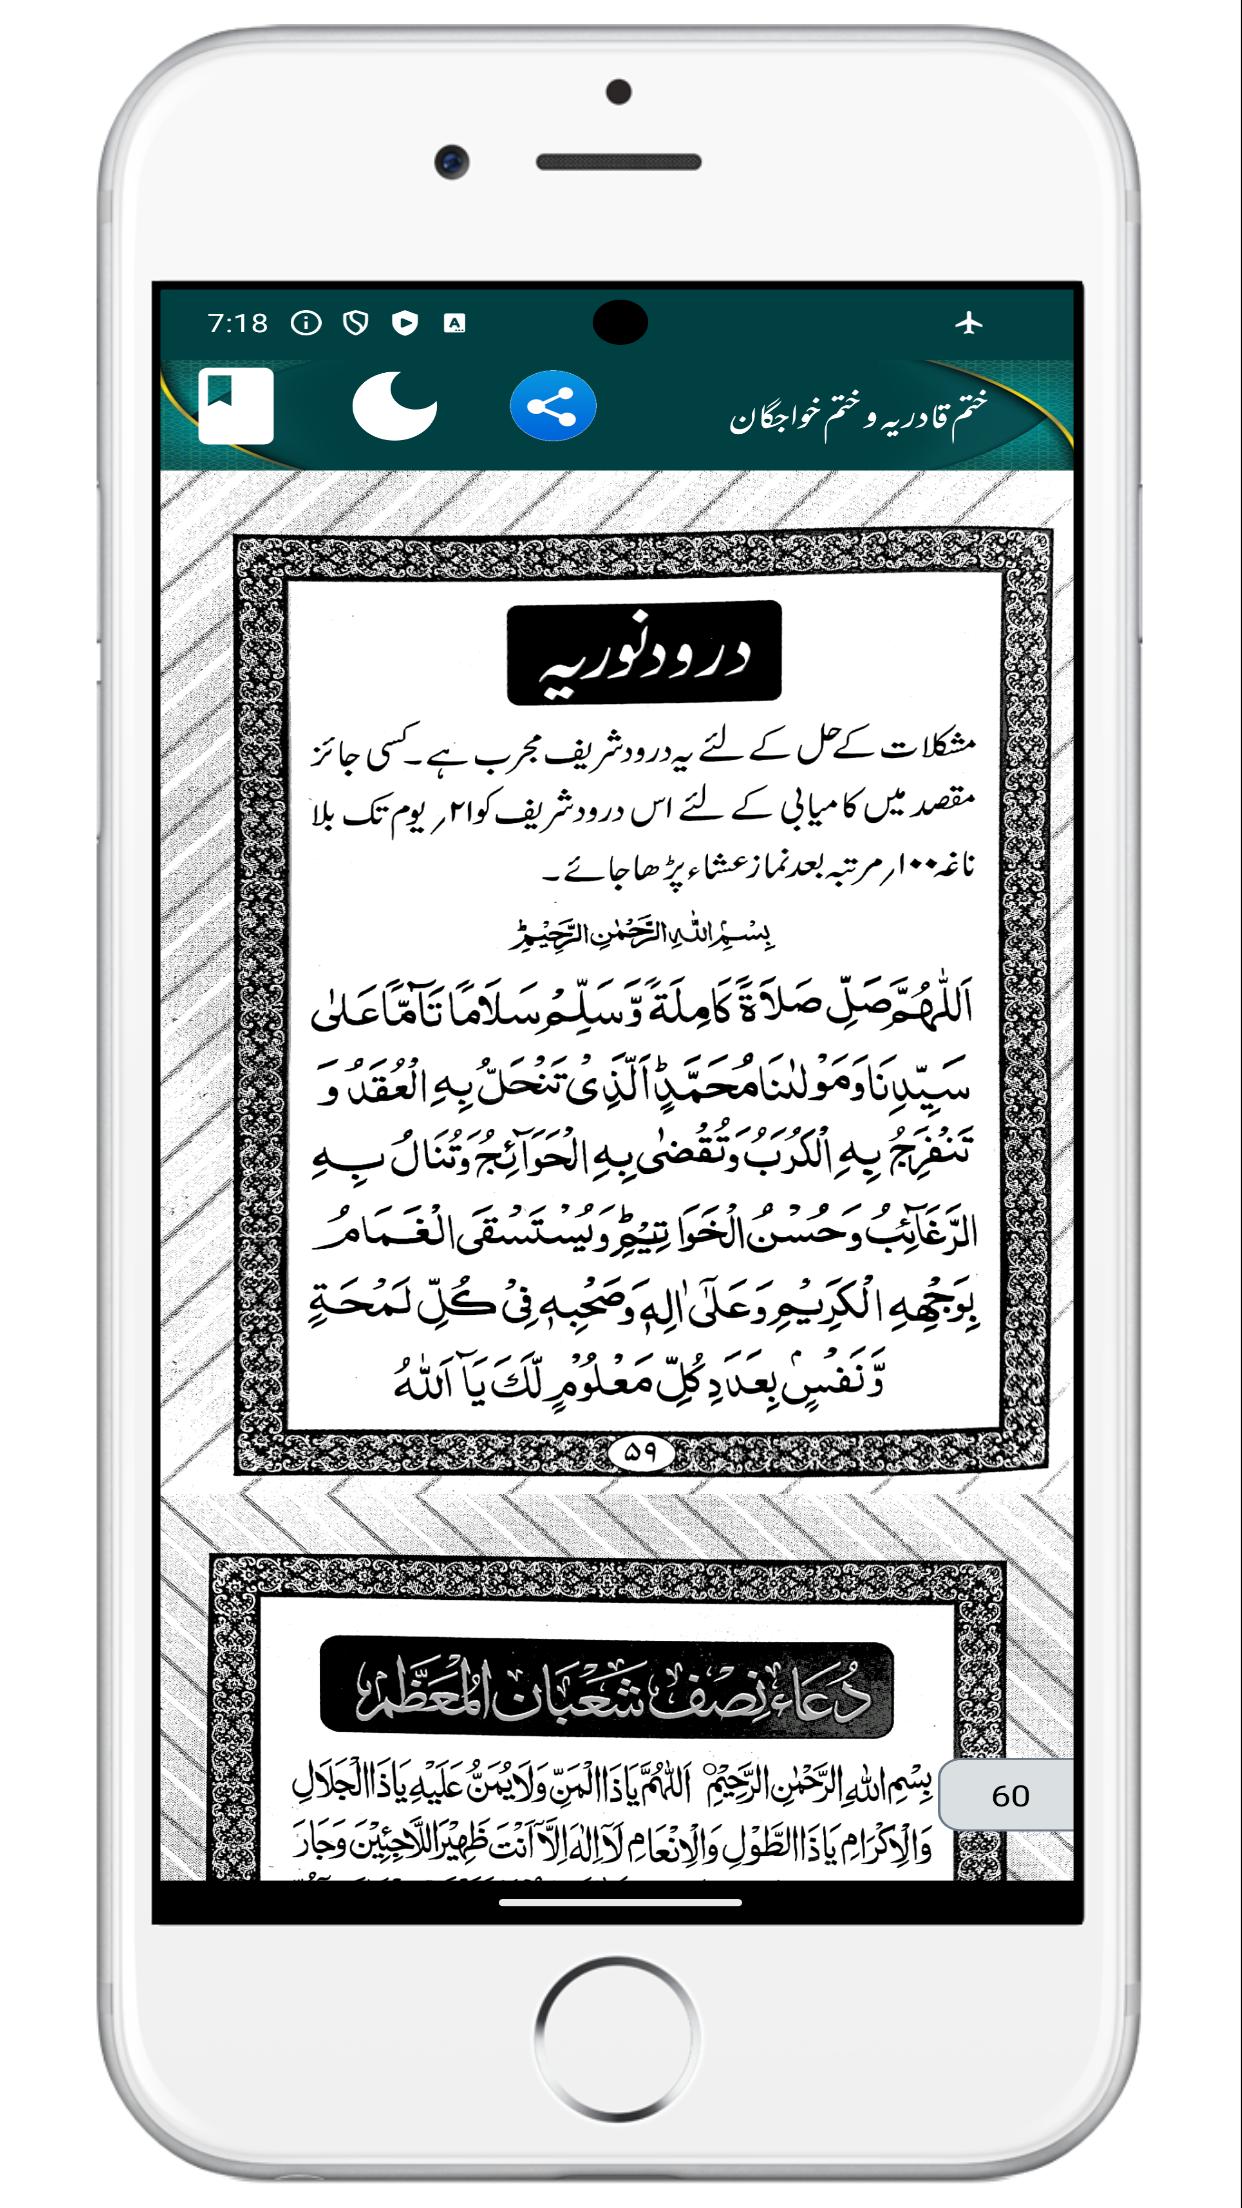 7:18
ختم قادریہ و ختم خواجگان
درود نوریہ
مشکلات کے حل کے لئے یہ درود شریف مجرب ہے۔ کسی جائز
مقصد میں کامیابی کے لئے اس درود شریف کو ۲۱؍ یوم تک بلا
ناغہ ۱۰۰؍ مرتبہ بعد نماز عشاء پڑھا جائے۔
بِسْمِ اللهِ الرَّحْمٰنِ الرَّحِيْمِؕ
اَللّٰهُمَّ صَلِّ صَلَاةً كَامِلَةً وَّسَلِّمْ سَلَامًا تَآمًّا عَلٰى
سَيِّدِنَا وَمَوْلٰىنَا مُحَمَّدٍؕ اَلَّذِىْ تَنْحَلُّ بِهِ الْعُقَدُ وَ
تَنْفَرِجُ بِهِ الْكُرَبُ وَتُقْضٰى بِهِ الْحَوَآئِجُ وَتُنَالُ بِهِ
الرَّغَآئِبُ وَحُسْنُ الْخَوَاتِيْمِؕ وَيُسْتَسْقَى الْغَمَامُ
بِوَجْهِهِ الْكَرِيْمِ وَعَلٰٓى اٰلِهٖ وَصَحْبِهٖ فِىْ كُلِّ لَمْحَةٍ
وَّنَفَسٍۭ بِعَدَدِ كُلِّ مَعْلُوْمٍ لَّكَ يَآ اَللّٰهُ
۵۹
دُعَاءِ نِصْف شَعْبَان الْمُعَظَّمْ
بِسْمِ اللهِ الرَّحْمٰنِ الرَّحِيْمِ۝ اَللّٰهُمَّ يَاذَا الْمَنِّ وَلَا يُمَنُّ عَلَيْهِ يَاذَا الْجَلَالِ
60
وَالْاِكْرَامِ يَاذَا الطَّوْلِ وَالْاِنْعَامِ لَآ اِلٰهَ اِلَّآ اَنْتَ ظَهِيْرَ اللَّاجِئِيْنَ وَجَارَ